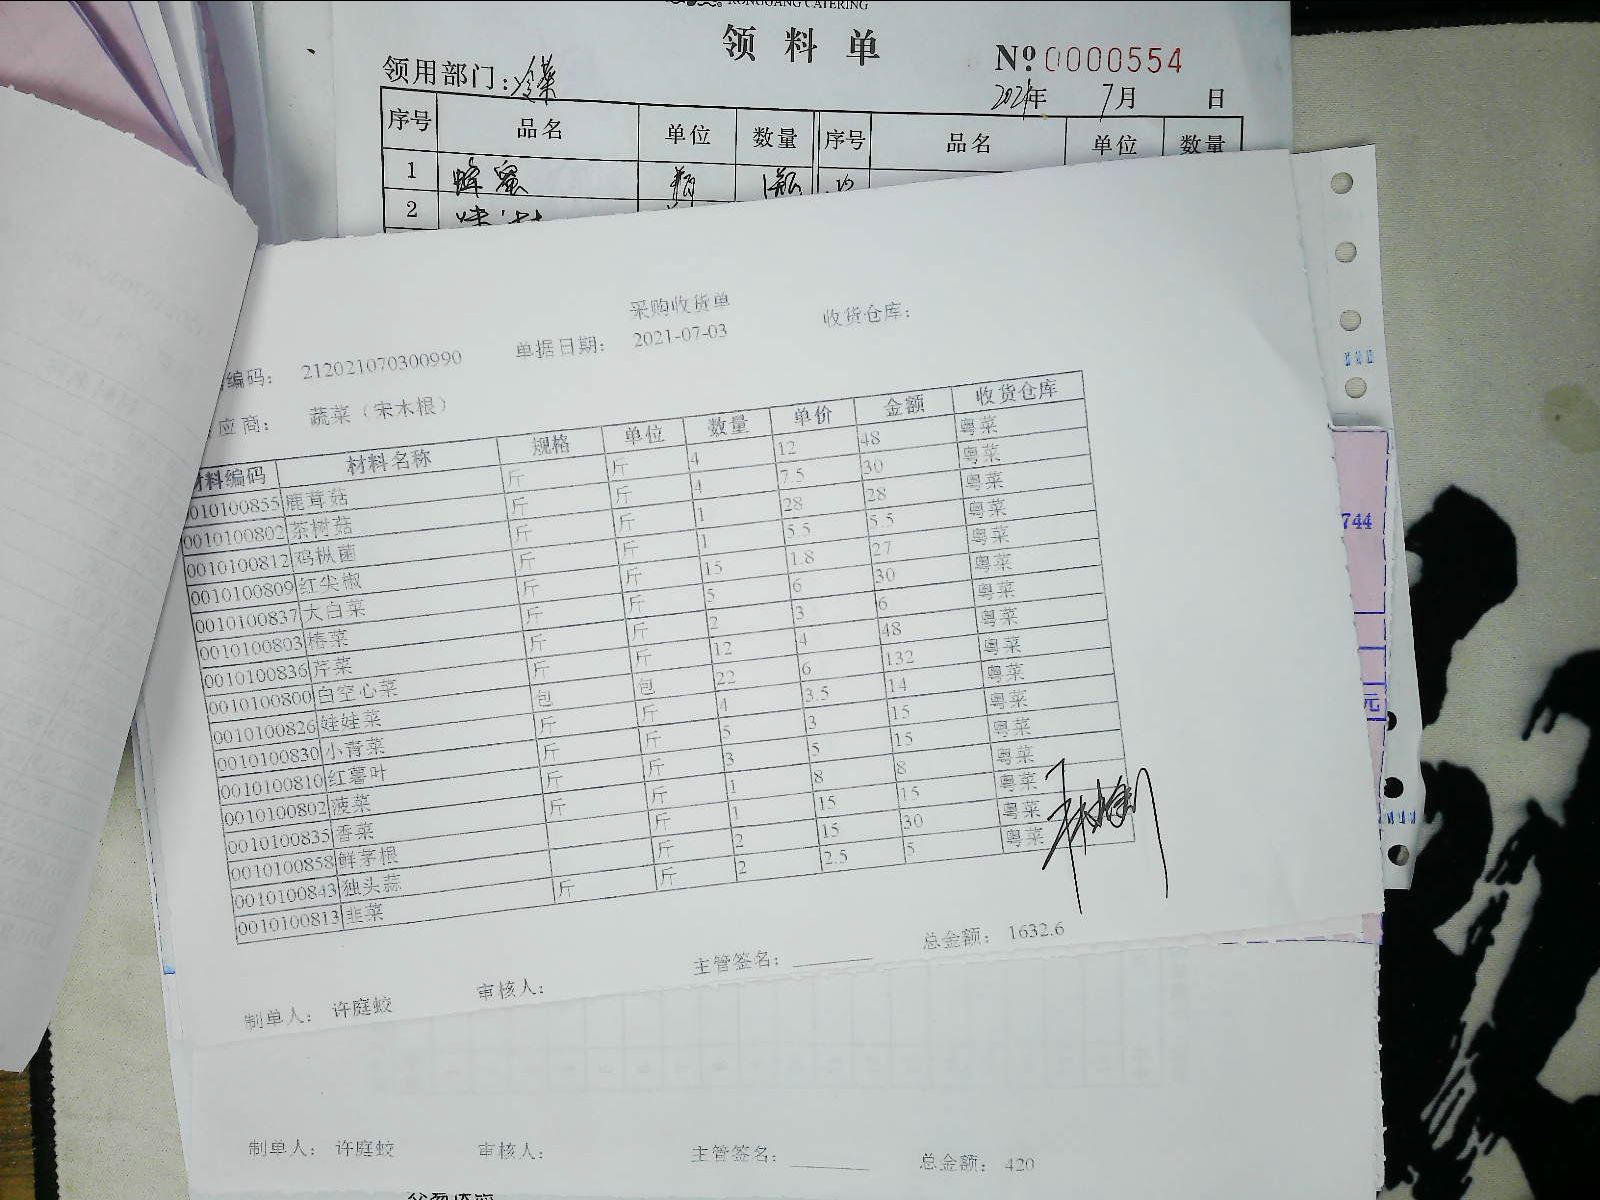 RONGGANG CATERING
领料单
№ 0000554
领用部门：冷菜
2021年 7月 日
序号 品名 单位 数量 序号 品名 单位 数量
1 蜂蜜 瓶 1瓶
2
采购收货单
编码： 212021070300990 单据日期： 2021-07-03 收货仓库：
应商： 蔬菜（宋木根）
材料编码 材料名称 规格 单位 数量 单价 金额 收货仓库
0010100855 鹿茸菇 斤 斤 4 12 48 粤菜
0010100802 茶树菇 斤 斤 4 7.5 30 粤菜
0010100812 鸡枞菌 斤 斤 1 28 28 粤菜
0010100809 红尖椒 斤 斤 1 5.5 5.5 粤菜
0010100837 大白菜 斤 斤 15 1.8 27 粤菜
0010100803 椿菜 斤 斤 5 6 30 粤菜
0010100836 芹菜 斤 斤 2 3 6 粤菜
0010100800 白空心菜 斤 斤 12 4 48 粤菜
0010100826 娃娃菜 包 包 22 6 132 粤菜
0010100830 小青菜 斤 斤 4 3.5 14 粤菜
0010100810 红薯叶 斤 斤 5 3 15 粤菜
0010100802 菠菜 斤 斤 3 5 15 粤菜
0010100835 香菜 斤 斤 1 8 8 粤菜
0010100858 鲜茅根 斤 1 15 15 粤菜
0010100843 独头蒜 斤 2 15 30 粤菜
0010100813 韭菜 斤 斤 2 2.5 5 粤菜
制单人： 许庭蛟 审核人： 主管签名： 总金额： 1632.6
制单人： 许庭蛟 审核人： 主管签名： 总金额： 420
744
元